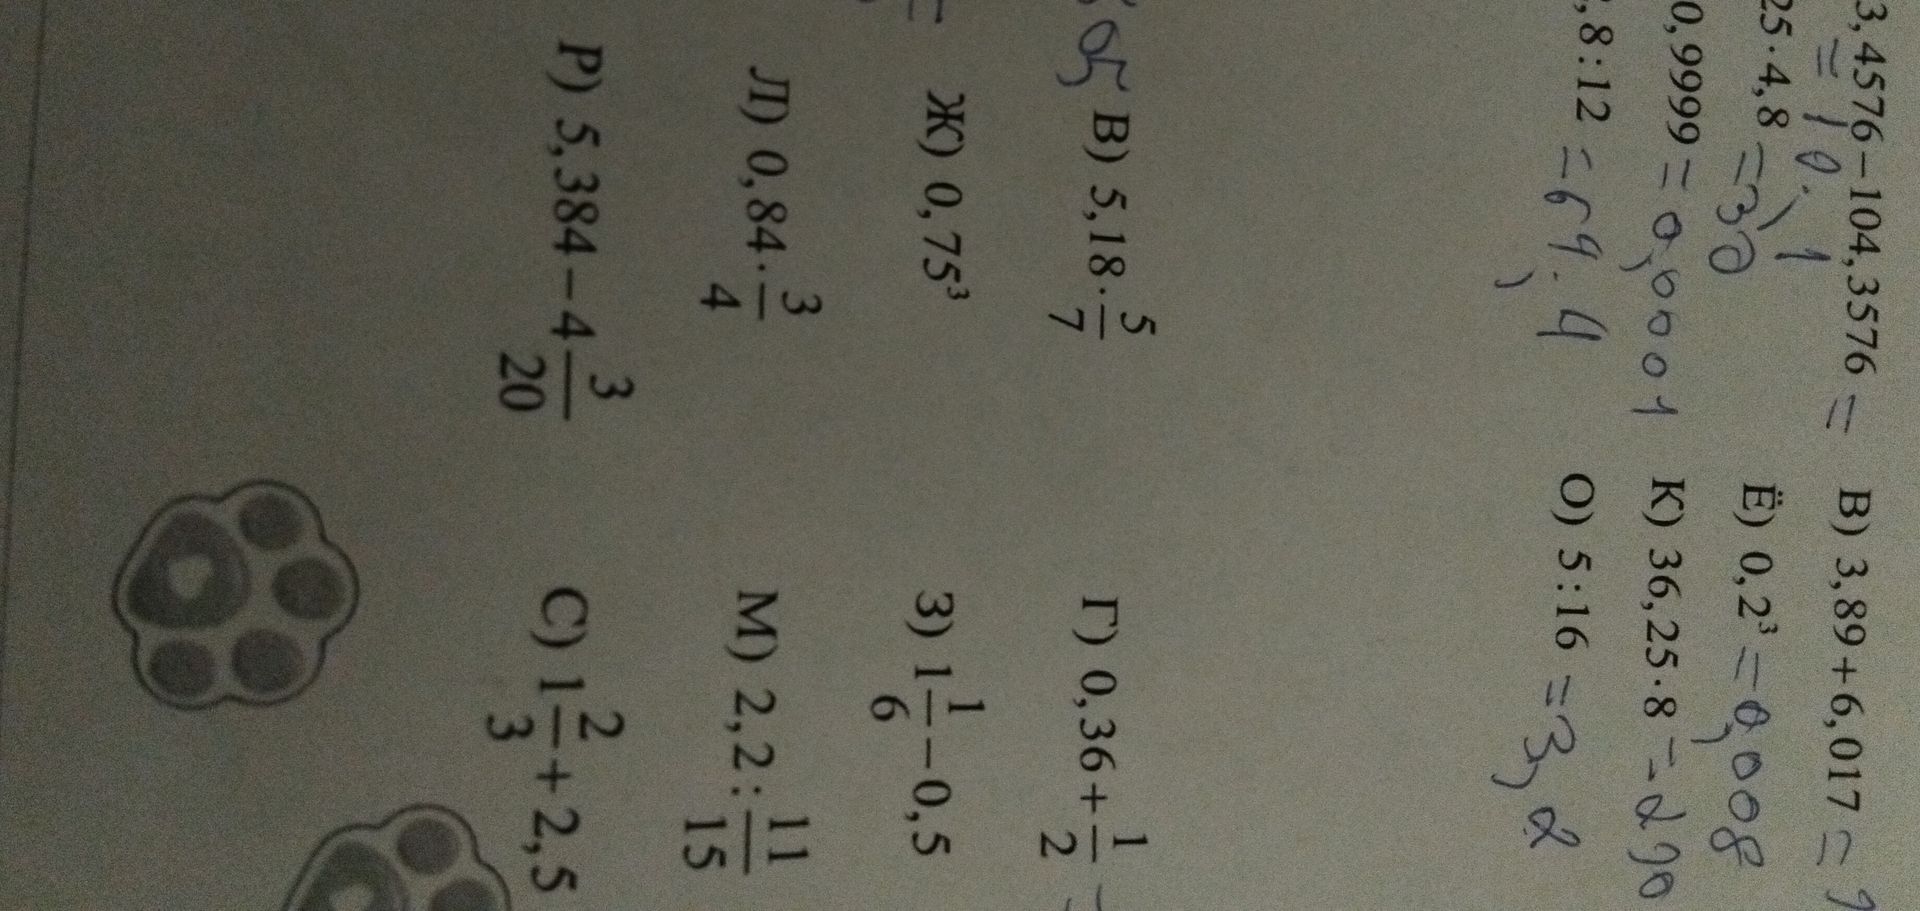 3,4576−104,3576 =
= 10,1
В) 3,89+6,017 =
25·4,8 =30
Ё) 0,2³ = 0,008
0,9999 = 0,0001
К) 36,25·8 = 290
,8:12 = 69,4
О) 5:16 = 3,2
05
В) 5,18·5/7
Г) 0,36+1/2
=
Ж) 0,75³
З) 1 1/6−0,5
Л) 0,84·3/4
М) 2,2:11/15
Р) 5,384−4 3/20
С) 1 2/3+2,5